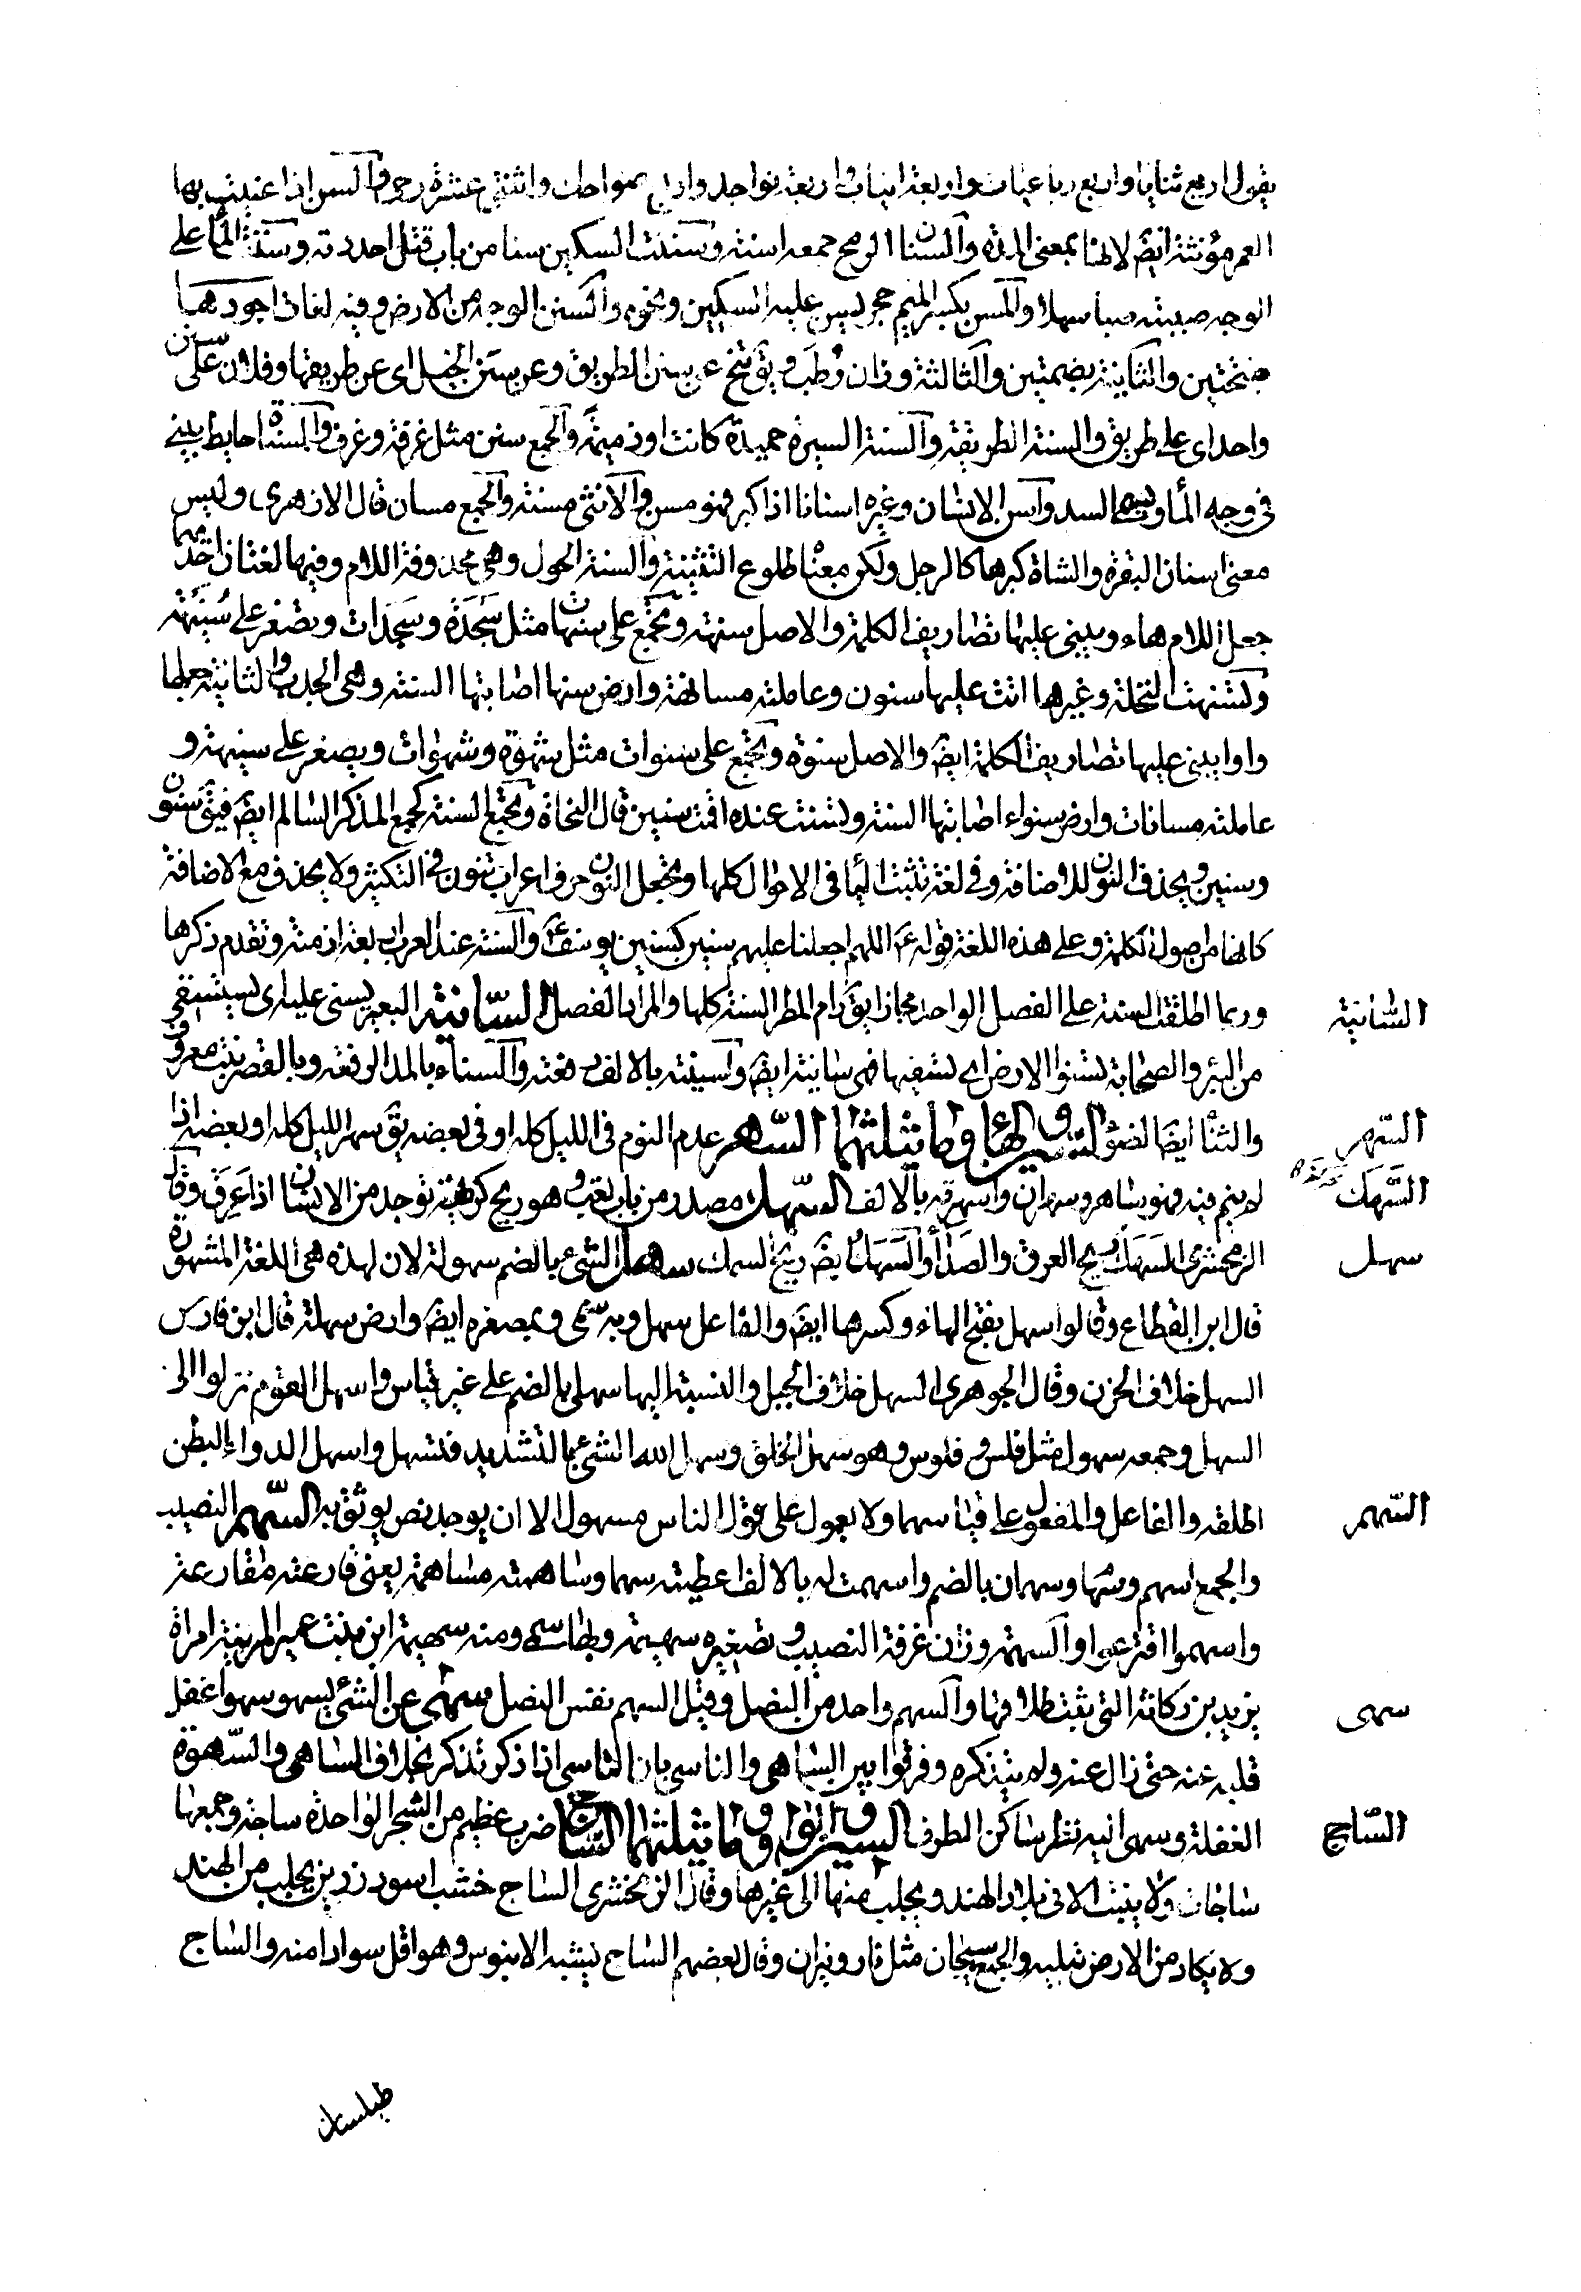 يقول اربع ثنايا واربع رباعيات واربعة انياب واربعة نواجد واربع ضواحك واثنتى عشرة رحى والسن اذا عنيت بها
العمر مؤنثة ايضَ لانها بمعنى المدة والسنان الرمح جمعه اسنة وسننت السكين سنا من باب قتل احددته وسننت الماء على
الوجه صببته صبا سهلا والمسن بكسر الميم حجر يسن عليه السكين ونحوه والسنن الوجه من الارض وفيه لغات اجودها
بفتحتين والثانية بضمتين والثالثة وزان رُطَب ويقَ تنح عن سنن الطريق وعن سنن الخيل اى عن طريقها وفلان على سنن
واحد اى على طريق والسنة الطريقة والسنة السيرة حميدة كانت او ذميمة والجمع سنن مثل غرفة وغرف والمسناة حايط يبنى
فى وجه الماء ويسمى السد واسن الانسان وغيره اسنانا اذا كبر فهو مسن والانثى مسنة والجمع مسان قال الازهرى وليس
معنى اسنان البقرة والشاة كبرها كالرجل ولكن معناه طلوع الثنية والسنة الحول وهى محذوفة اللام وفيها لغتان احدهما
جعل اللام هاء ويبنى عليها تصاريف الكلمة والاصل سنهة وتجمع على سنهات مثل سَجَدَة وسَجَدَات وتصغر على سُنَيْهَة
وتسنهت النخلة وغيرها اتت عليها سنون وعاملته مسانهة وارض سنها اصابتها السنة وهى الجدب والثانية جعلها
واوا يبنى عليها تصاريف الكلمة ايضَ والاصل سنوة وتجمع على سنوات مثل شهوة وشهوات ويصغر على سنيهة و
عاملته مسانات وارض سنواء اصابتها السنة وتسنت عنده اقمت سنين قال النحاة وتجمع السنة كجمع المذكر السالم ايضَ فيقَ سنون
وسنين ويحذف النون للاضافة وفى لغة تثبت اليا فى الاحوال كلها وتجعل النون حرف اعراب تنون فى التكثير ولا يحذف مع الاضافة
كانها من اصول الكلمة وعلى هذه اللغة قوله ع اللهم اجعلنا عليهم سنين كسنين يوسف ع والسنة عند العرب اربعة ازمنة وتقدم ذكرها
وربما اطلقت السنة على الفصل الواحد مجازا يقَ دام المطر السنة كلها والمراد الفصل السّانية البعير يسنى عليه اى يستسقى
السّانية
من البئر والصحابة تسنوا الارض اى تسقيها فهى سانية ايضَ واسنيته بالالف رفعته والسناء بالمد الرفعة وبالقصر نبت معروف
والسنا ايضا الضوء السّين والهاء وما يثلثهما السّهر عدم النوم فى الليل كله او فى بعضه يقَ سهر الليل كله او بعضه اذا
السّهر
لم ينم فيه فهو ساهر وسهران واسهرته بالالف السّهك مصدر من باب تعب وهو ريح كريهة توجد من الانسان اذا عرق وقال
السَّهَك
الزمخشرى السَهَك ريح العرق والصَدَأ والسهك ايضَ ريح السمك سهل الشىء بالضم سهولة لان هذه هى اللغة المشهورة
سهل
قال ابن القطاع وقالوا سهل بفتح الهاء وكسرها ايضَ والفاعل سهل وبه سمى وبمصغره ايضَ وارض سهلة قال ابن فارس
السهل خلاف الحزن وقال الجوهرى السهل خلاف الجبل والنسبة اليها سهلى بالضم على غير قياس واسهل القوم نزلوا الى
السهل وجمعه سهول مثل فلس وفلوس وهو سهل الخلق وسهل الله الشىء بالتشديد فتسهل واسهل الدواء البطن
اطلقه والفاعل والمفعول على قياسهما ولا يعول على قول الناس مسهول الا ان يوجد نص يوثق به السّهم النصيب
السّهم
والجمع اسهم وسها وسهمان بالضم واسهمت له بالالف اعطيته سهما وساهمته مساهمة يعنى قارعته مقارعة
واسهموا اقترعوا والسهمة وزان غرفة النصيب وتصغيره سهيمة وبها سمى ومنه سهيمة ابن بنت عمير المزينة امراة
يزيد بن ركانة التى بت طلاقها والسهم واحد من النبل وقيل السهم نفس النصل سهى عن الشىء يسهو سهوا غفل
سهى
قلبه عنه حتى زال عنه ولم يتذكره وفرقوا بين الساهى والناسى بان الناسى اذا ذكر تذكر بخلاف الساهى والسّهوة
الغفلة وسهى اليه نظر ساكن الطرف السين والواو وما يثلثهما السّاج ضرب عظيم من الشجر الواحدة ساجة وجمعها
السّاج
ساجات ولا ينبت الا فى بلاد الهند ويجلب منها الى غيرها وقال الزمخشرى الساج خشب اسود رزين يجلب من الهند
ولا يكاد من الارض تبليه والجمع سيجان مثل نار ونيران وقال بعضهم الساج يشبه الابنوس وهو اقل سوادا منه والساج
طيلسان